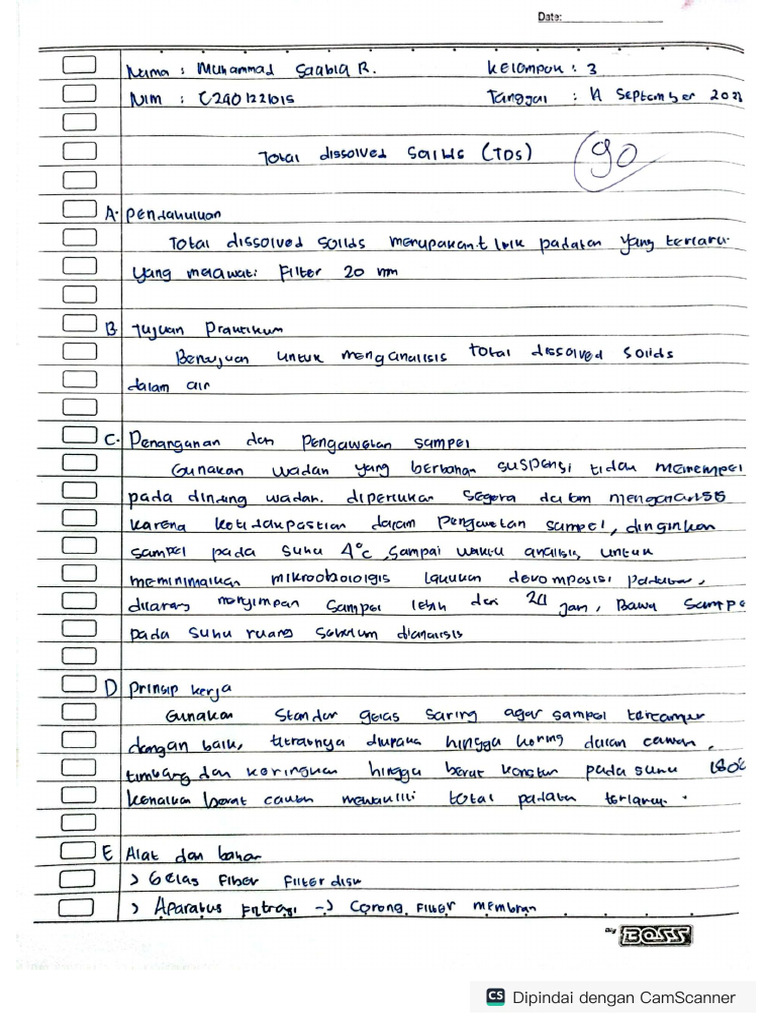 Date:
Nama : Muhammad Saabiq R. Kelompok : 3
NIM : C2401221015 Tanggal : 14 September 202
Total dissolved Solids (TDS) 90
A. Pendahuluan
Total dissolved solids merupakan padatan yang terlarut
yang melewati Filter 20 nm
B Tujuan Praktikum
Bertujuan untuk menganalisis total dissolved solids
dalam air
C. Penanganan dan Pengawetan sampel
Gunakan wadah yang berbahan suspensi tidak menempel
pada dinding wadah. diperlukan segera dalam menganalisis
karena ketidakpastian dalam Pengawetan sampel, dinginkan
sampel pada suhu 4°C, sampai waktu analisis, untuk
meminimalkan lakukan devomposisi Padatan,
dilarang menyimpan sampel lebih dari 24 jam, Bawa Sampe
pada suhu ruang sebelum dianalisis
D Prinsip kerja
Gunakan Standar gelas saring agar sampel tercampur
dengan baik, hingga kering dalam cawan,
timbang dan keringkan hingga berat konstan pada suhu 180°C
kenaikan berat cawan mewakili total padatan terlarut.
E Alat dan bahan
> Gelas Fiber Filter disk
> Aparatus Filtrasi -> Corong, Filter membran
Big BOSS
CS Dipindai dengan CamScanner